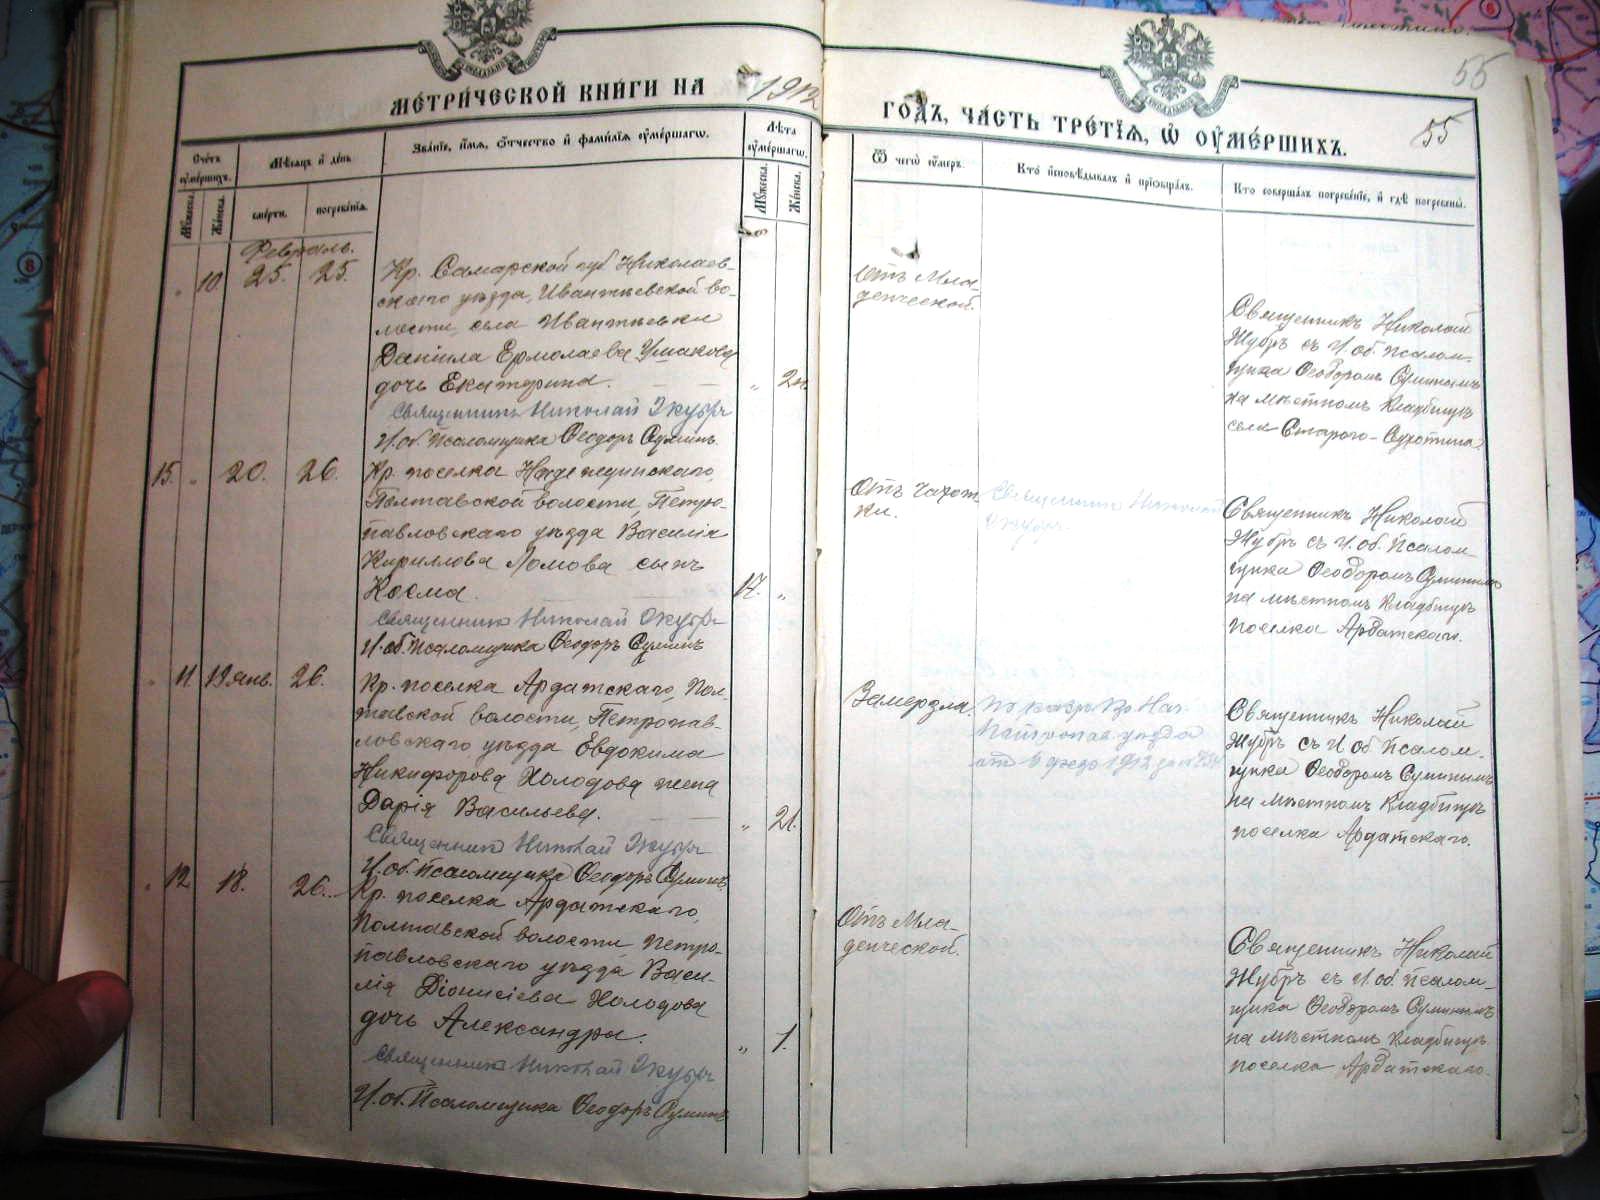 МЕТРИЧЕСКОЙ КНИГИ НА 1912
ГОДЪ, ЧАСТЬ ТРЕТІЯ, Ѡ ОУМЕРШИХЪ.
55
55
Счетъ оумершихъ.
Мѣсяцъ и день
Званіе, имя, отчество и фамилія оумершагѡ.
Лѣта оумершагѡ.
Мужеска.
Женска.
смерти.
погребенія.
Мужеска.
Женска.
Ѿ чегѡ оумеръ.
Кто исповѣдывалъ и пріобщалъ.
Кто совершалъ погребеніе, и гдѣ погребены.
Февраль.
„ 10. 25. 25.
Кр. Самарской губ. Николаев-
скаго уѣзда, Ивантѣевской во-
лости, села Ивантѣевки
Даніила Ермолаева Ушакова
дочь Екатерина.
„ 2н.
Священникъ Николай Жубръ
И. об. Псаломщика Ѳеодоръ Суминъ
Отъ Мла-
денческой.
Священникъ Николай
Жубръ съ И. об. псалом-
щика Ѳеодоромъ Суминымъ
на мѣстномъ кладбищѣ
села Старого-Сухотина.
15. „ 20. 26.
Кр. поселка Надеждинскаго,
Полтавской волости, Петро-
павловскаго уѣзда Василія
Кириллова Ломова сынъ
Косма.
17. „
Священникъ Николай Жубръ
И. об. Псаломщика Ѳеодоръ Суминъ
Отъ Чахот
ки.
Священникъ Николай
Жубръ.
Священникъ Николай
Жубръ съ И. об. Псалом
щика Ѳеодоромъ Суминымъ
на мѣстномъ кладбищѣ
поселка Ардатскаго.
„ 11. 19 янв. 26.
Кр. поселка Ардатскаго, Пол-
тавской волости, Петропав-
ловскаго уѣзда Евдокима
Никифорова Холодова жена
Дарія Васильева.
„ 21.
Священникъ Николай Жубръ
И. об. Псаломщика Ѳеодоръ Суминъ
Замерзла.
По разр. Нач.
уѣзда
1912
Священникъ Николай
Жубръ съ И об Псалом-
щика Ѳеодоромъ Суминымъ
на мѣстномъ кладбищѣ
поселка Ардатскаго.
„ 12 18. 26.
Кр. поселка Ардатскаго,
Полтавской волости Петро-
павловскаго уѣзда Васи-
лія Діонисіева Холодова
дочь Александра.
„ 1.
Священникъ Николай Жубръ
И. об. Псаломщика Ѳеодоръ Суминъ
Отъ Мла-
денческой.
Священникъ Николай
Жубръ съ И. об. Псалом-
щика Ѳеодоромъ Суминымъ
на мѣстномъ кладбищѣ
поселка Ардатскаго.